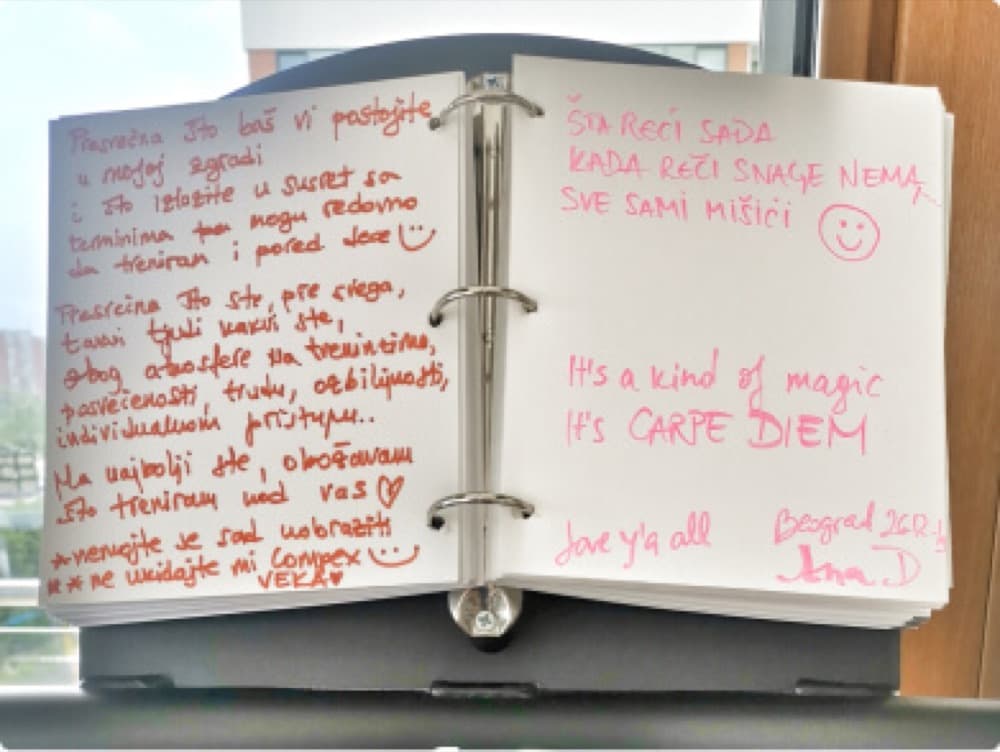 Presrećna što baš vi postojite
u mojoj zgradi
i što izlazite u susret sa
terminima pa mogu redovno
da treniram i pored dece
Presrećna što ste, pre svega,
takvi ljudi kakvi ste,
zbog atmosfere na treninzima,
posvećenosti, trudu, ozbiljnosti,
individualnom pristupu..
Ma najbolji ste, obožavam
što treniram kod vas
*nemojte se sad uobraziti
**ne ukidajte mi Compex
VEKA
ŠTA REĆI SADA
KADA REČI SNAGE NEMA,
SVE SAMI MIŠIĆI
It's a kind of magic
It's CARPE DIEM
Love y'a all
Beograd
Ana D